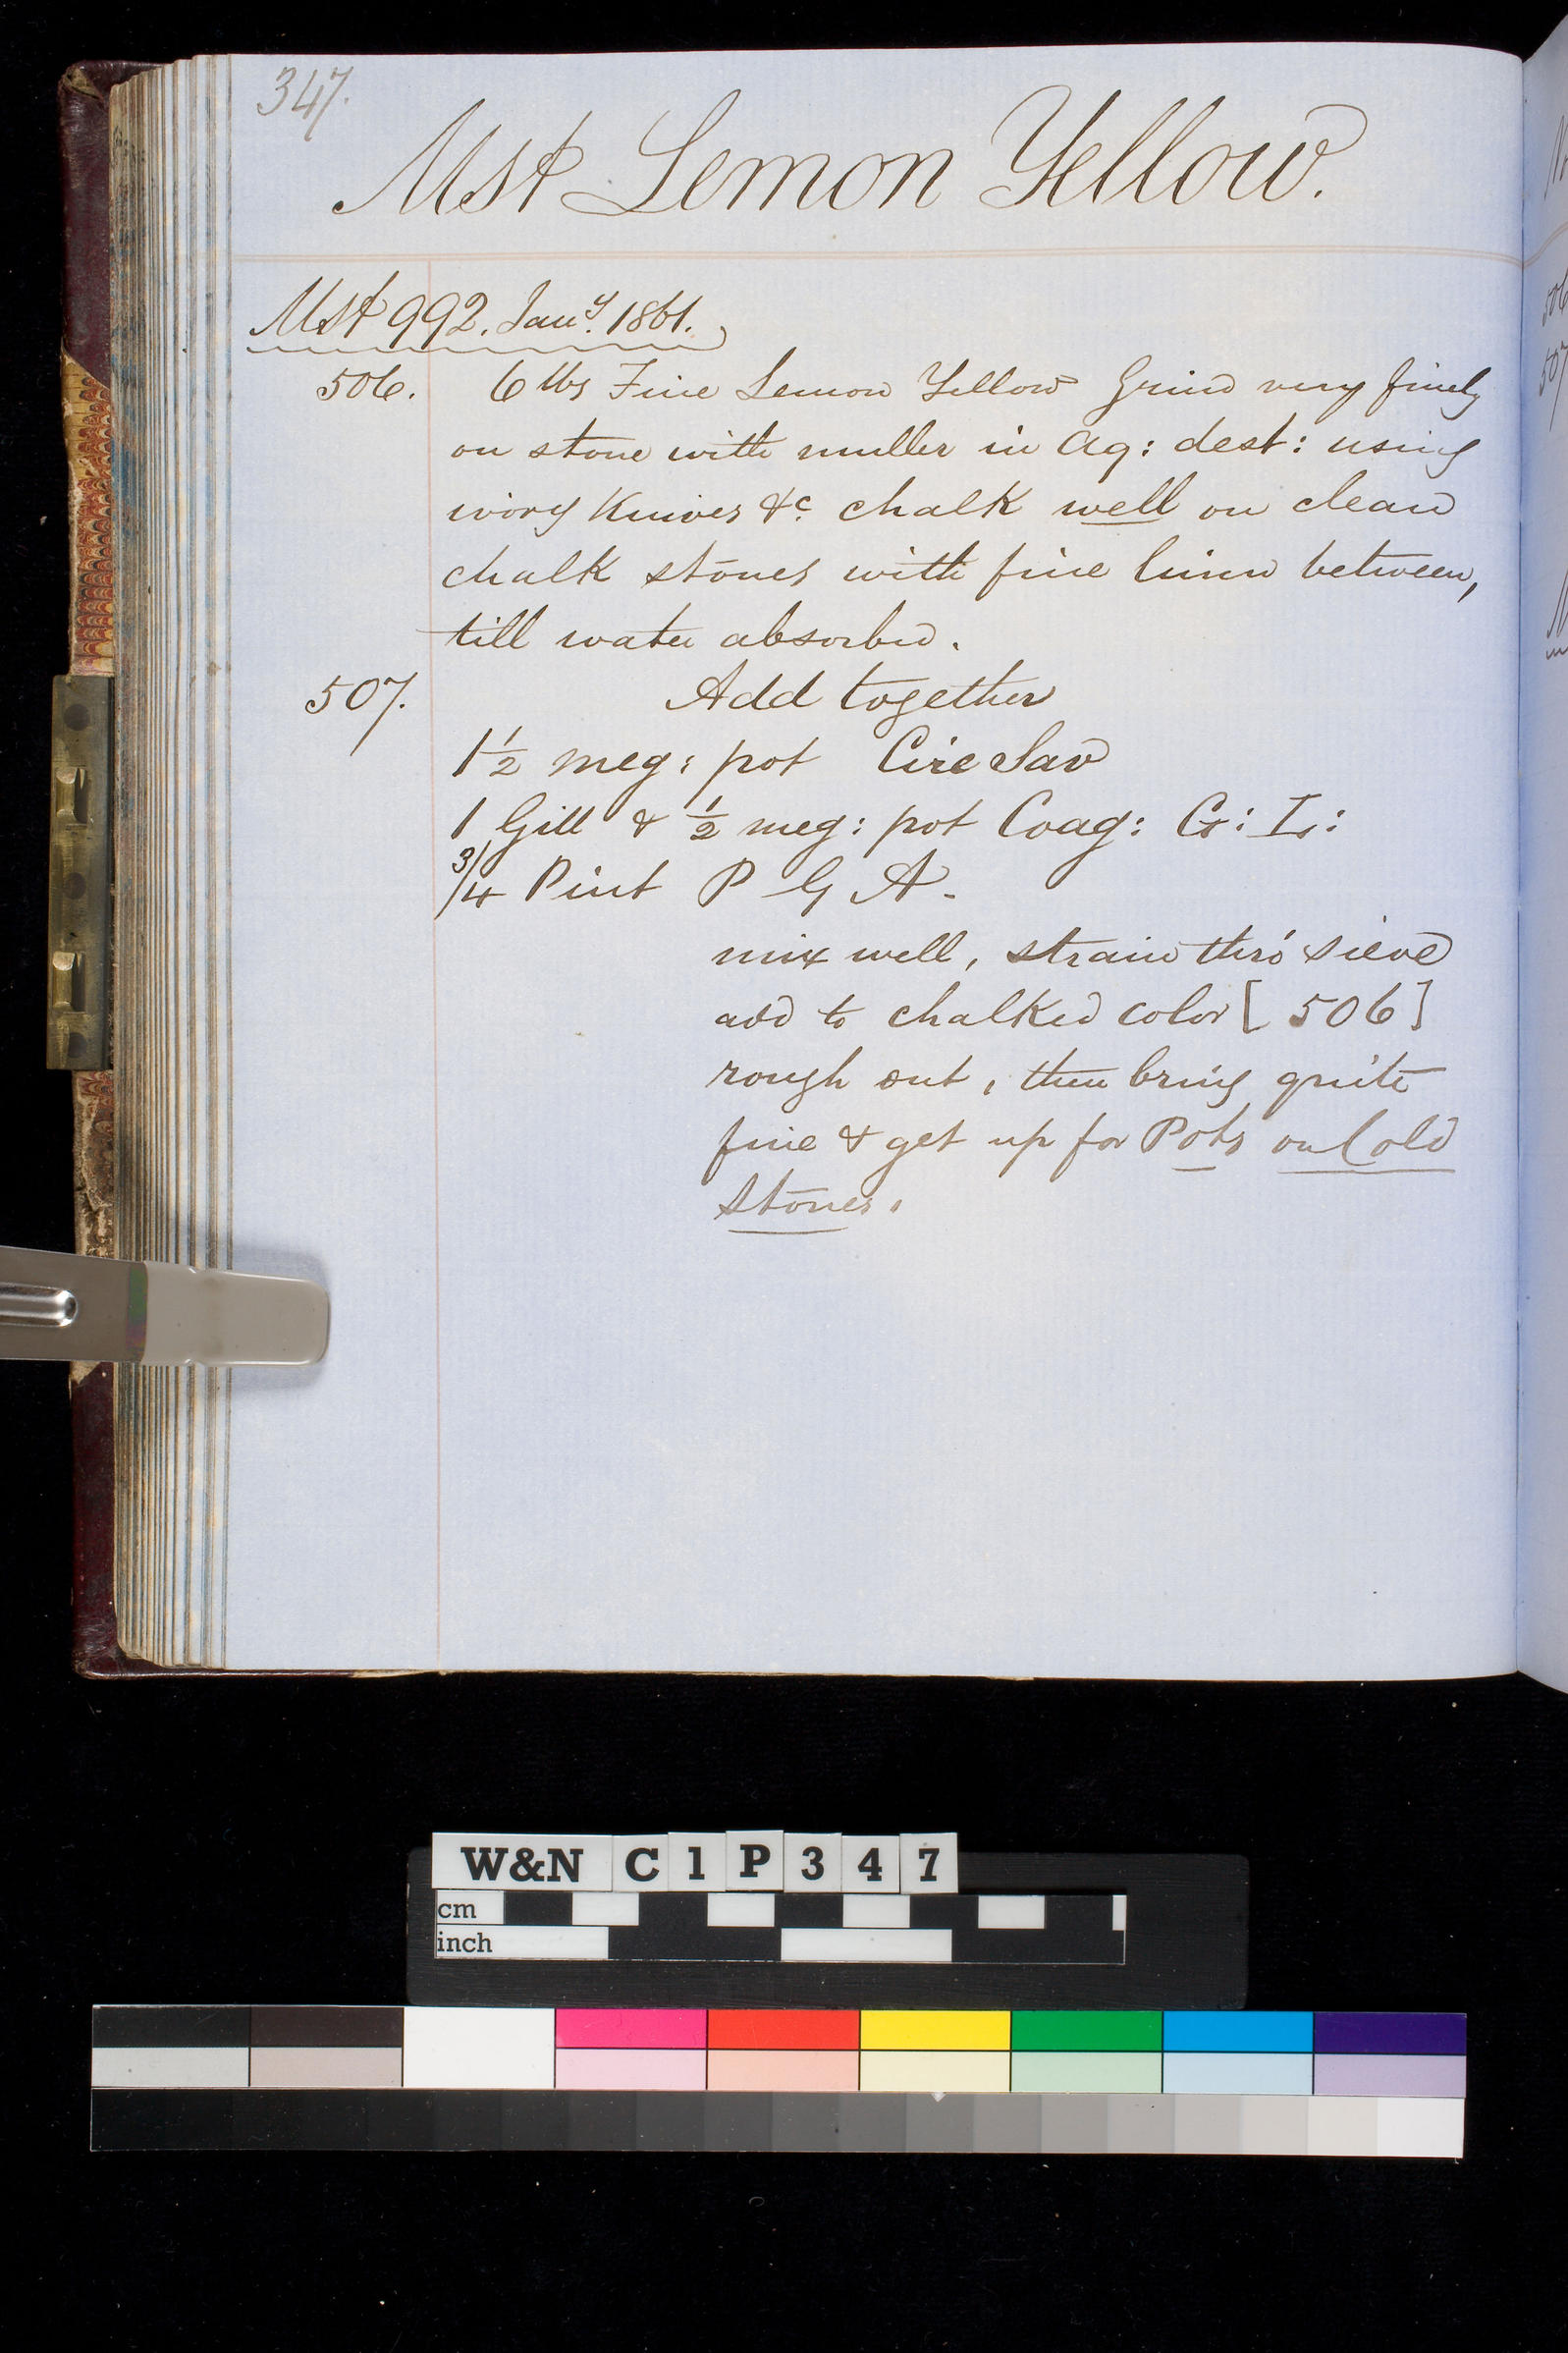 347.
Mst Lemon Yellow.
Mst 992. Jany. 1861.
506. 6 lbs Fine Lemon Yellow Grind very finely
on stone with muller in aq: dest: using
ivory Knives &c. chalk well on clean
chalk stones with fine linen between,
till water absorbed.
507. Add together
1 1/2 meg: pot Cire Sav
1 Gill & 1/2 meg: pot Coag: G: L:
3/4 Pint P G A.
mix well, strain thro' sieve
add to chalked color [506]
rough out, then bring quite
fine & get up for Pots on Cold
Stones.
506
507
W&N C1P347
cm
inch